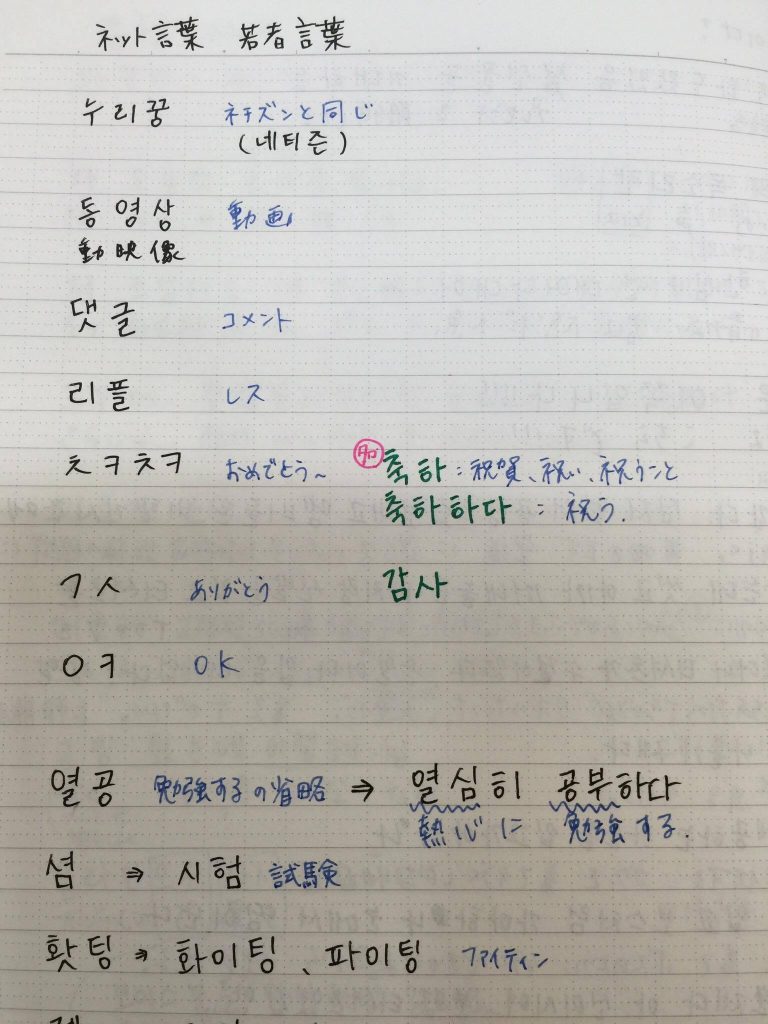 ネット言葉 若者言葉
누리꿍 ネチズンと同じ
(네티즌)
동영상 動画
動映像
댓글 コメント
리플 レス
ㅊㅋㅊㅋ おめでとう~ 축하:祝賀、祝い、祝うこと
축하하다:祝う.
ㄱㅅ ありがとう 감사
ㅇㅋ OK
열공 勉強するの省略 ⇒ 열심히 공부하다
熱心に 勉強する.
셤 ⇒ 시험 試験
홧팅 ⇒ 화이팅、파이팅 ファイティン